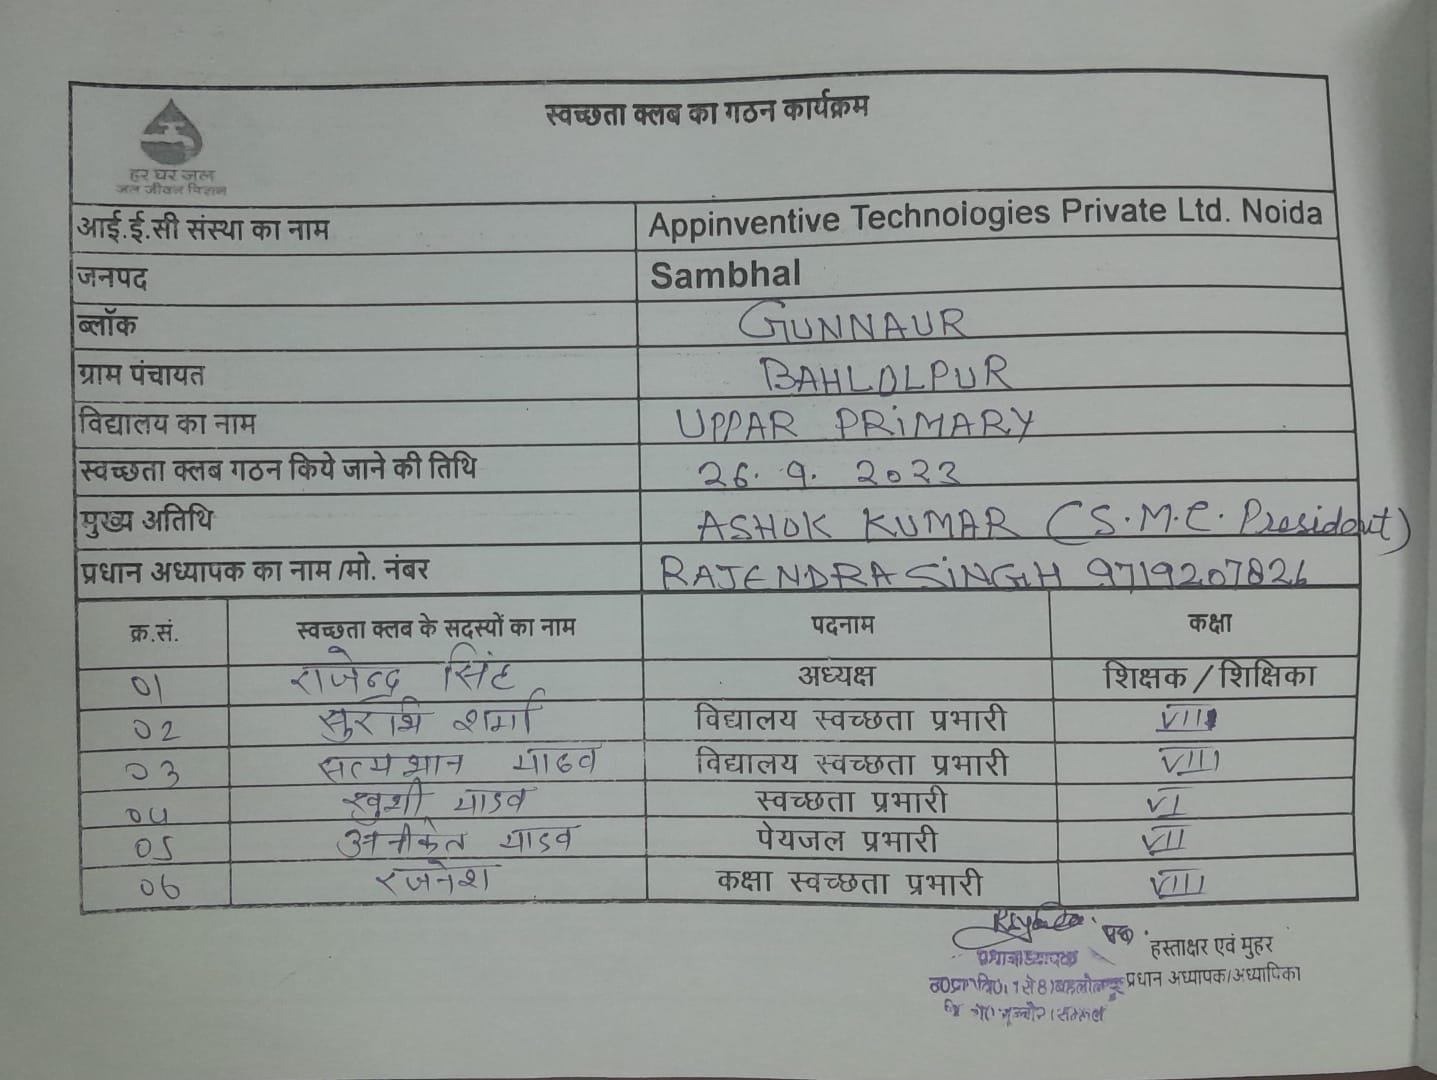 स्वच्छता क्लब का गठन कार्यक्रम
हर घर जल
जल जीवन मिशन
आई.ई.सी संस्था का नाम Appinventive Technologies Private Ltd. Noida
जनपद Sambhal
ब्लॉक GUNNAUR
ग्राम पंचायत BAHLOLPUR
विद्यालय का नाम UPPAR PRIMARY
स्वच्छता क्लब गठन किये जाने की तिथि 26.9.2023
मुख्य अतिथि ASHOK KUMAR (S.M.C. President)
प्रधान अध्यापक का नाम /मो. नंबर RAJENDRA SINGH 9719207826
क्र.सं. स्वच्छता क्लब के सदस्यों का नाम पदनाम कक्षा
01 राजेन्द्र सिंह अध्यक्ष शिक्षक / शिक्षिका
02 सुरभि शर्मा विद्यालय स्वच्छता प्रभारी VIII
03 सत्यभान यादव विद्यालय स्वच्छता प्रभारी VIII
04 खुशी यादव स्वच्छता प्रभारी VI
05 अनीकेत यादव पेयजल प्रभारी VII
06 रजनेश कक्षा स्वच्छता प्रभारी VIII
हस्ताक्षर एवं मुहर
प्रधान अध्यापक/अध्यापिका
प्रधानाध्यापक